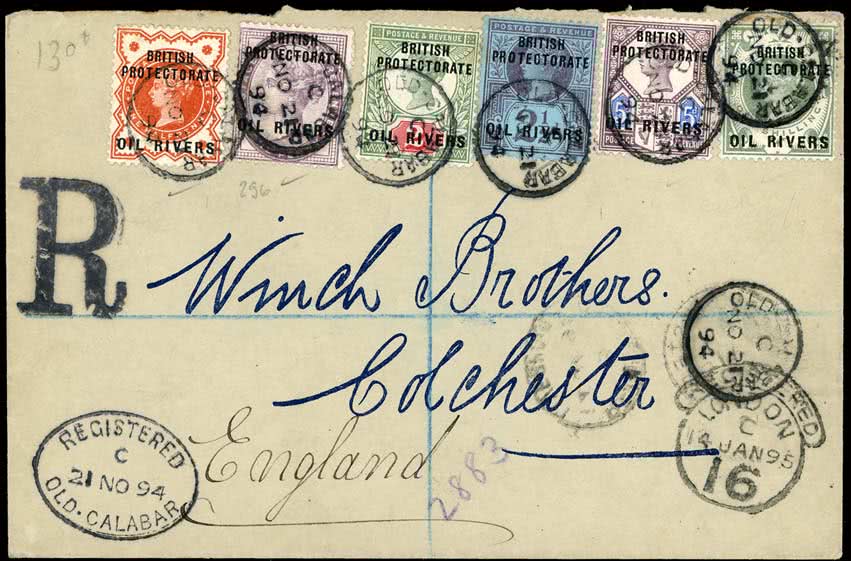 130
BRITISH
PROTECTORATE
OIL RIVERS
BRITISH
PROTECTORATE
OIL RIVERS
POSTAGE & REVENUE
BRITISH
PROTECTORATE
OIL RIVERS
POSTAGE & REVENUE
BRITISH
PROTECTORATE
OIL RIVERS
BRITISH
PROTECTORATE
OIL RIVERS
BRITISH
PROTECTORATE
OIL RIVERS
296
R
Winch Brothers.
Colchester
England
2883
OLD-CALABAR
C
NO 21
94
REGISTERED
LONDON
C
14 JAN 95
16
REGISTERED
C
21 NO 94
OLD-CALABAR